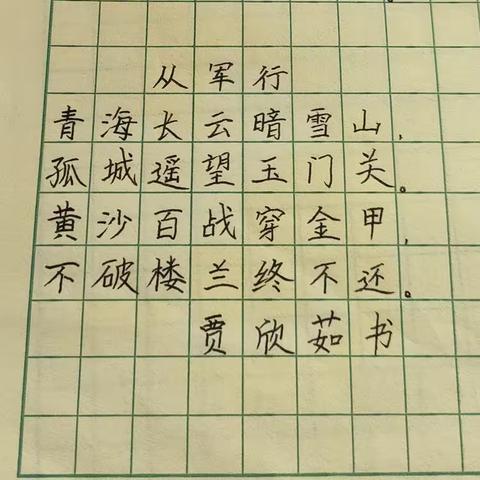 从军行
青海长云暗雪山,
孤城遥望玉门关。
黄沙百战穿金甲,
不破楼兰终不还。
贾欣茹书